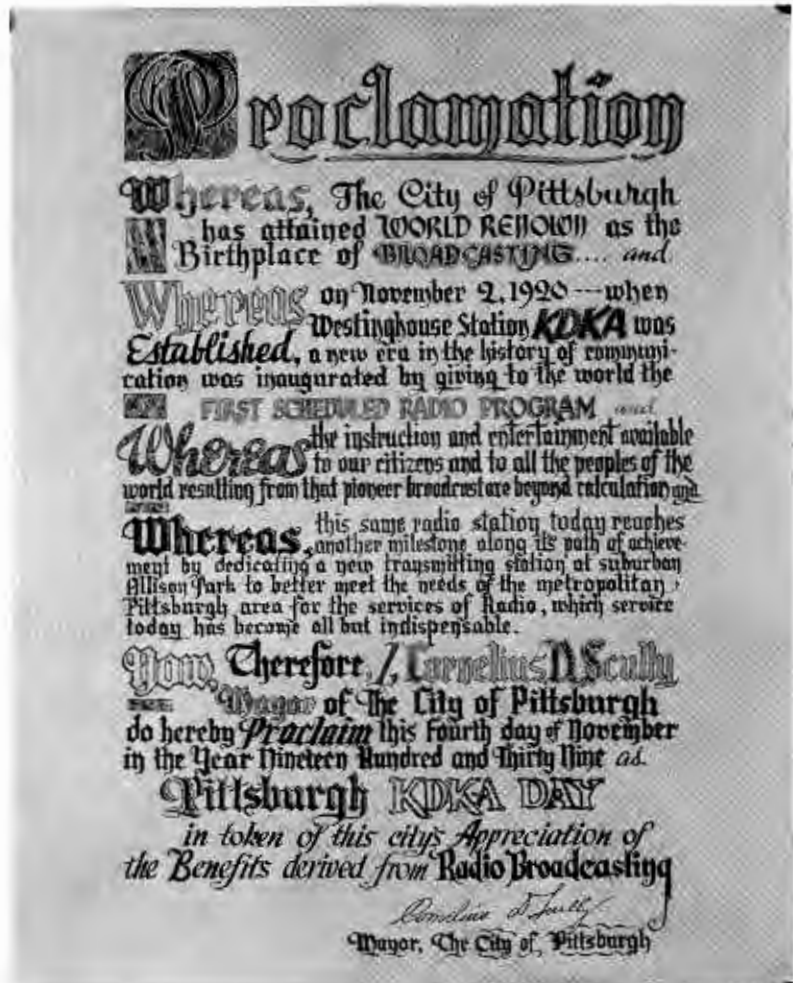 Proclamation
Whereas, The City of Pittsburgh
has attained WORLD RENOWN as the
Birthplace of BROADCASTING.... and
Whereas on November 2, 1920 --- when
Westinghouse Station KDKA was
Established, a new era in the history of communi-
cation was inaugurated by giving to the world the
FIRST SCHEDULED RADIO PROGRAM and
Whereas the instruction and entertainment available
to our citizens and to all the peoples of the
world resulting from that pioneer broadcast are beyond calculation and
Whereas, this same radio station today reaches
another milestone along its path of achieve-
ment by dedicating a new transmitting station at suburban
Allison Park to better meet the needs of the metropolitan
Pittsburgh area for the services of Radio, which service
today has become all but indispensable.
Now, Therefore, I, Cornelius D. Scully
Mayor of The City of Pittsburgh
do hereby Proclaim this Fourth day of November
in the Year Nineteen Hundred and Thirty Nine as
Pittsburgh KDKA DAY
in token of this city's Appreciation of
the Benefits derived from Radio Broadcasting
Cornelius D Scully
Mayor, The City of Pittsburgh